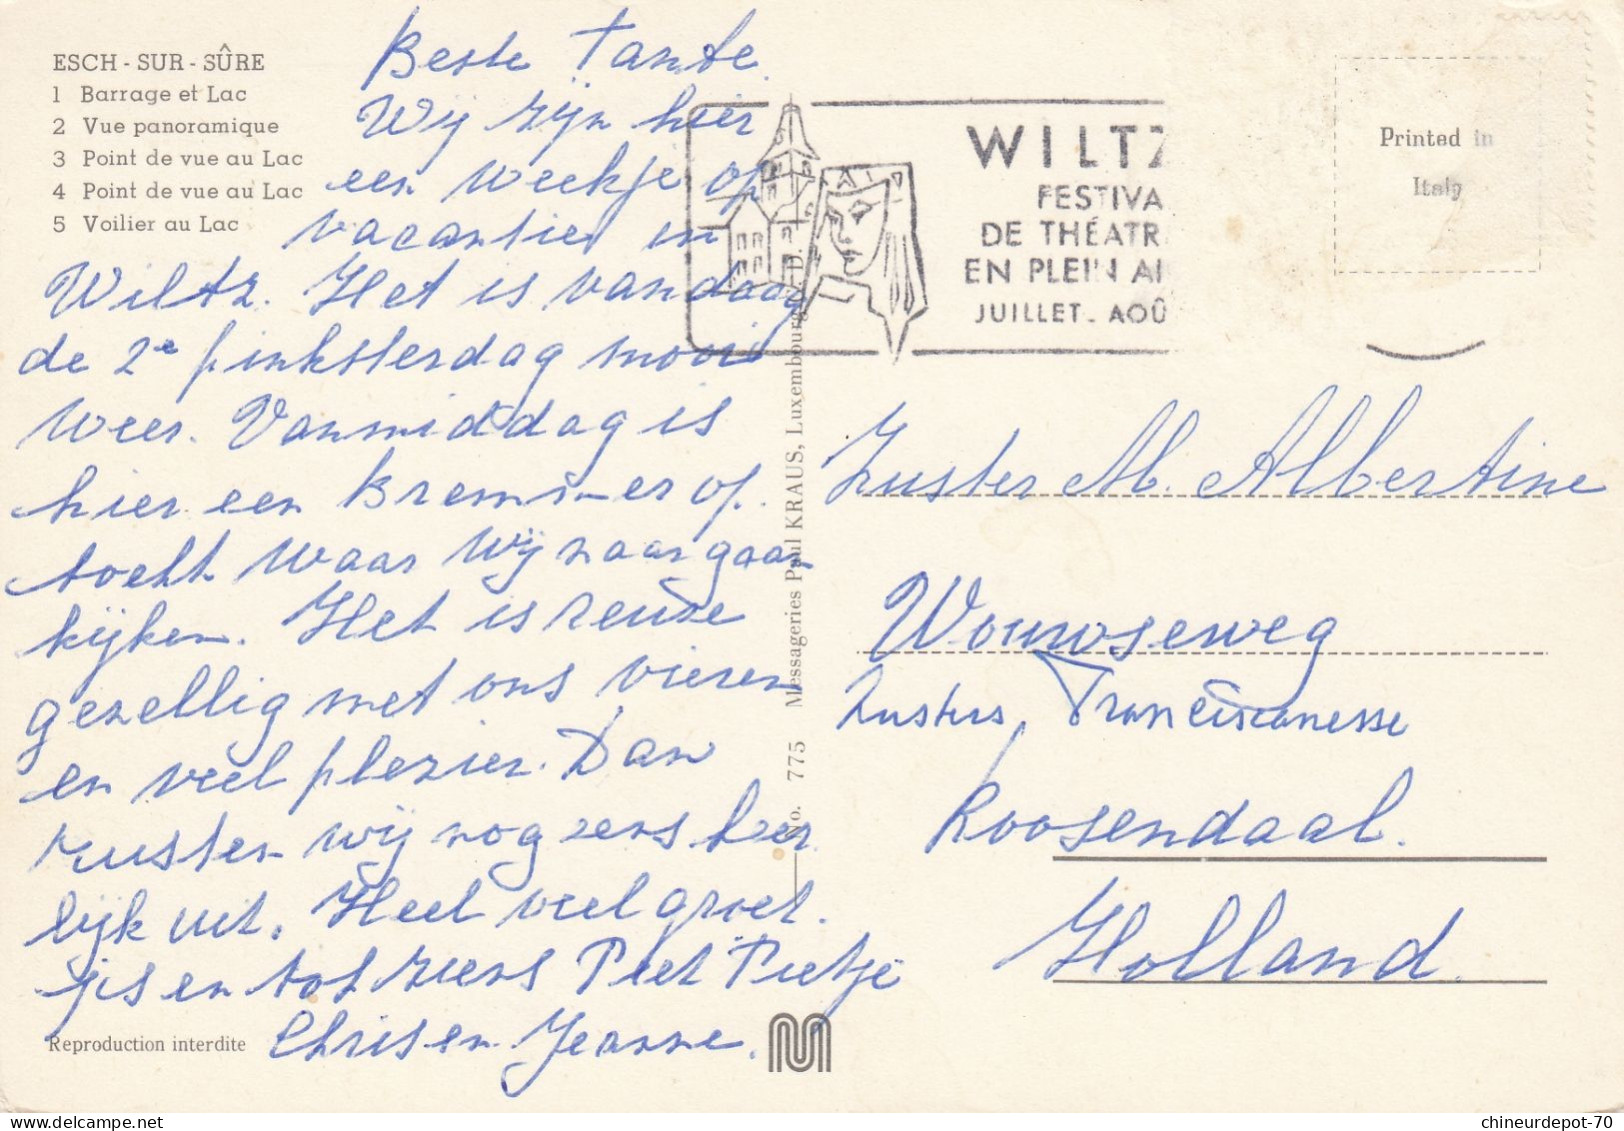 ESCH - SUR - SÛRE
1 Barrage et Lac
2 Vue panoramique
3 Point de vue au Lac
4 Point de vue au Lac
5 Voilier au Lac
Beste Tante.
Wij zijn hier
een weekje op
vacantie in
Wiltz. Het is vandaag
de 2e pinksterdag mooi
weer. Vanmiddag is
hier een Bremmer op.
tocht waar wij naar gaan
kijken. Het is reuze
gezellig met ons vieren
en veel plezier. Dan
rusten wij nog eens heer
lijk uit. Heel veel groet.
jes en tot ziens Piet Pietje
Chris en Jeanne.
Reproduction interdite
No. 775 Messageries Paul KRAUS, Luxembourg
D.
WILTZ
FESTIVA
DE THÉATR
EN PLEIN AI
JUILLET - AOÛ
Printed in
Italy
Zuster M. Albertine
Wouwseweg
Zusters Franciscanesse
Roosendaal.
Holland.
chineurdepot-70